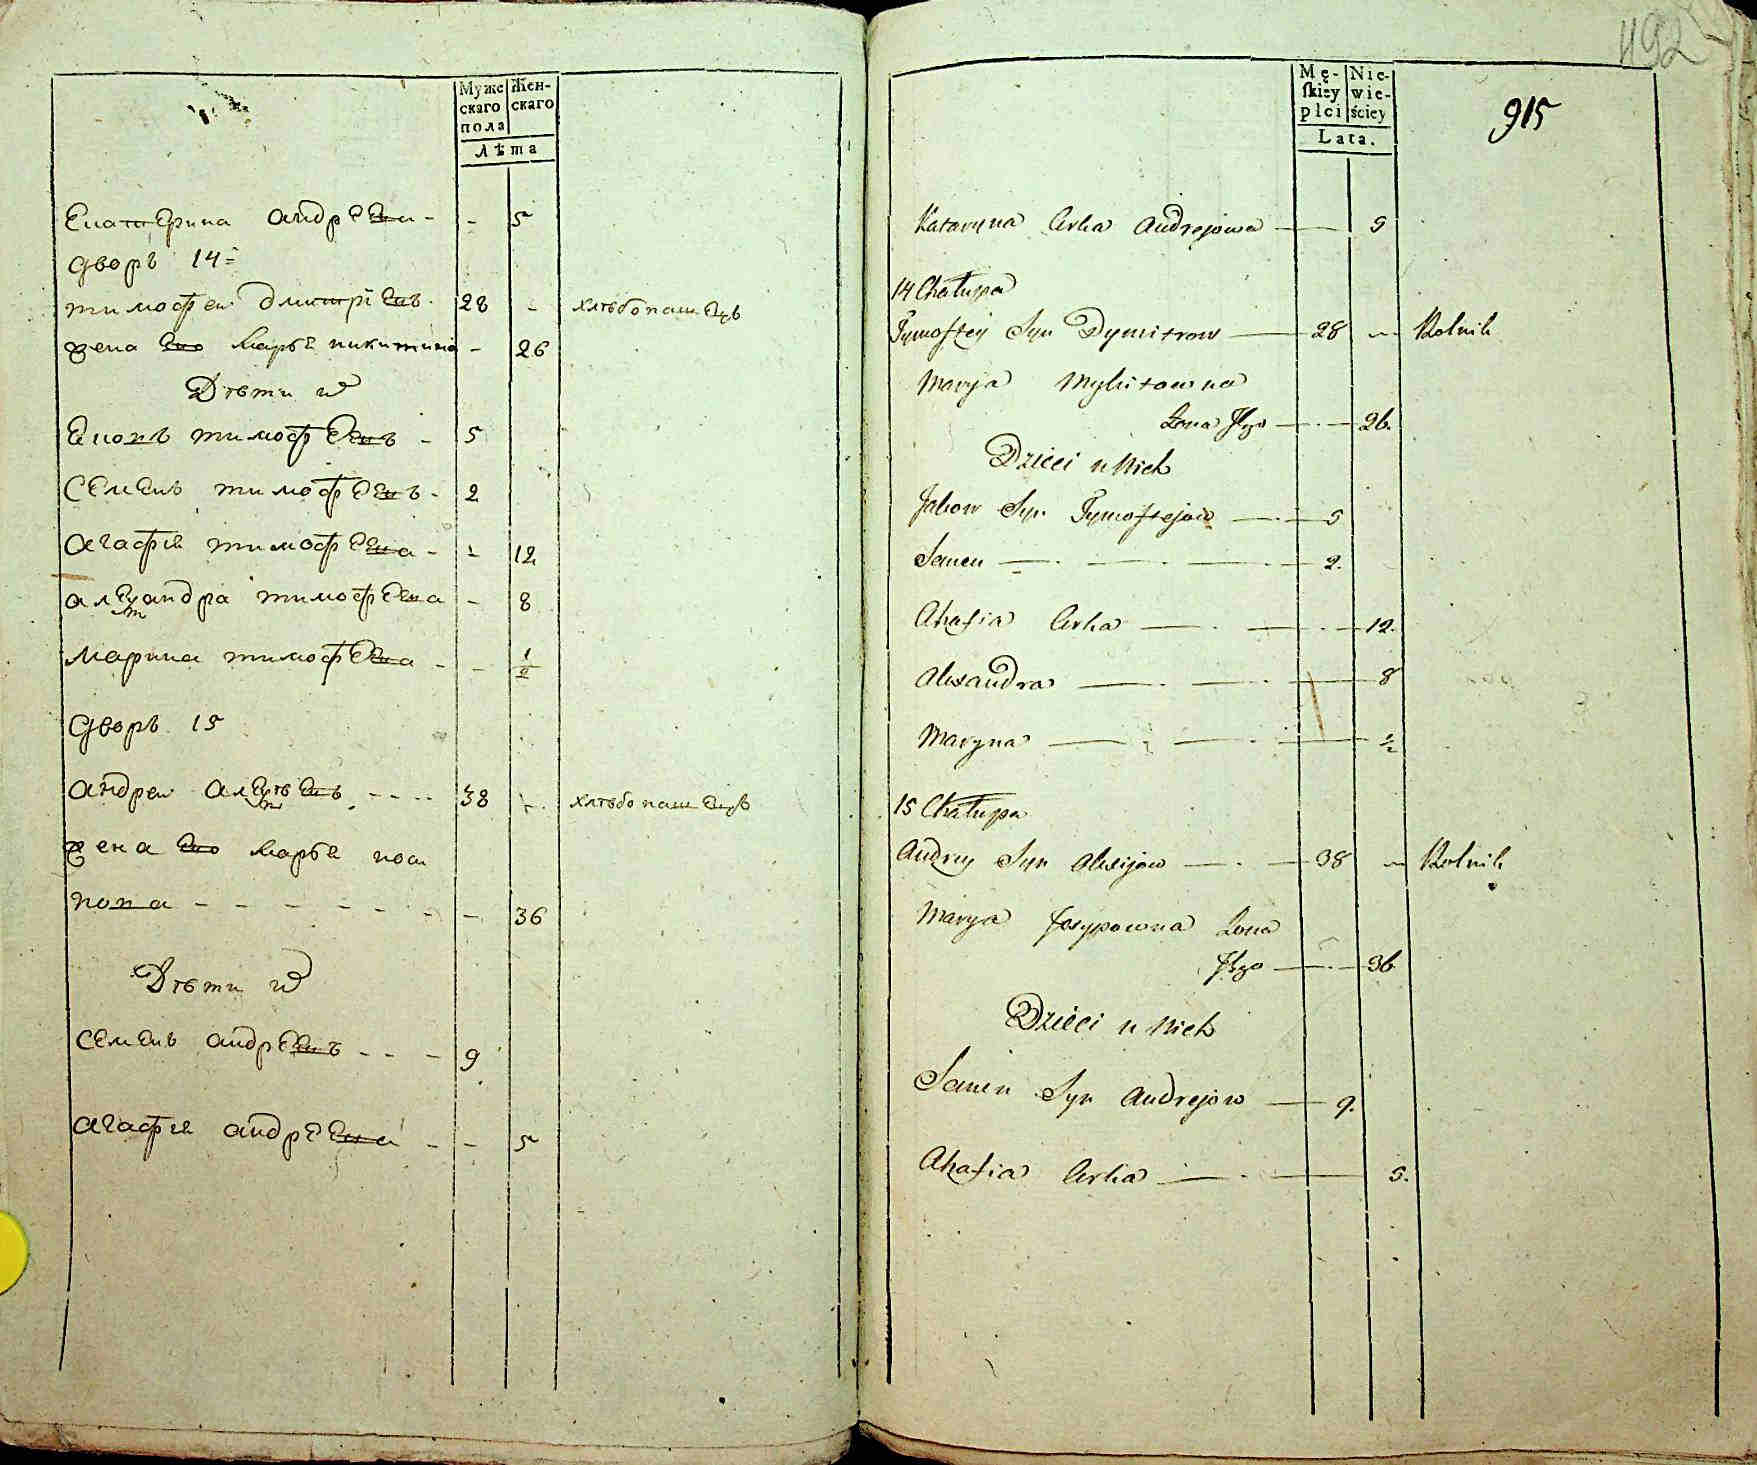 Муже Жен-
скаго скаго
пола
Лѣта
Екатерина андреева - - 5
дворъ 14
тимофеи дмитріевъ 28 - хлѣбопашецъ
жена ево марья никитина - 26
Дѣти их
Яковъ тимофеевъ - 5
Семенъ тимофеевъ - 2
агафья тимофеева - - 12
александра тимофеева - 8
марина тимофеева - - 1/2
дворъ 15
андреи алексѣевъ - - - - 38 - хлѣбопашецъ
жена ево марья иоси
пова - - - - - - - 36
Дѣти их
Семенъ андреевъ - - - 9
агафья андреева - - 5
492
Mę- Nie-
skiey wie-
płci ściey
Lata.
915
Kataryna Corka Andrejowa — 5
14 Chałupa
Tymoftey Syn Dymitrow — 28 — Rolnik
Marya Mykitowna
Żona Jego — 26.
Dzieci u Nich
Jakow Syn Tymoftejow — 5
Semen — 2.
Ahafia Corka — 12.
Alexandra — 8
Maryna — 1/2
15 Chałupa
Andrey Syn Alexijow — 38 — Rolnik
Marya Josypowna Żona
Jego — 36
Dzieci u Nich
Semen Syn Andrejow — 9.
Ahafia Corka — 5.